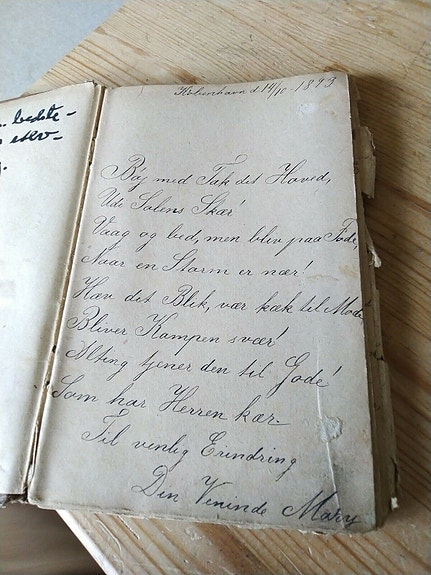 bedste-
København d 14/10-1893
Bøj med Tak dit Hoved,
Ude Solens Skær!
Vaag og bed, men bliv paa Fode,
Naar en Storm er nær!
Hæv dit Blik, vær kæk til Mode
Bliver Kampen svær!
Alting tjener den til Gode!
Som har Herren kær.
Til venlig Erindring
Din Veninde Mary